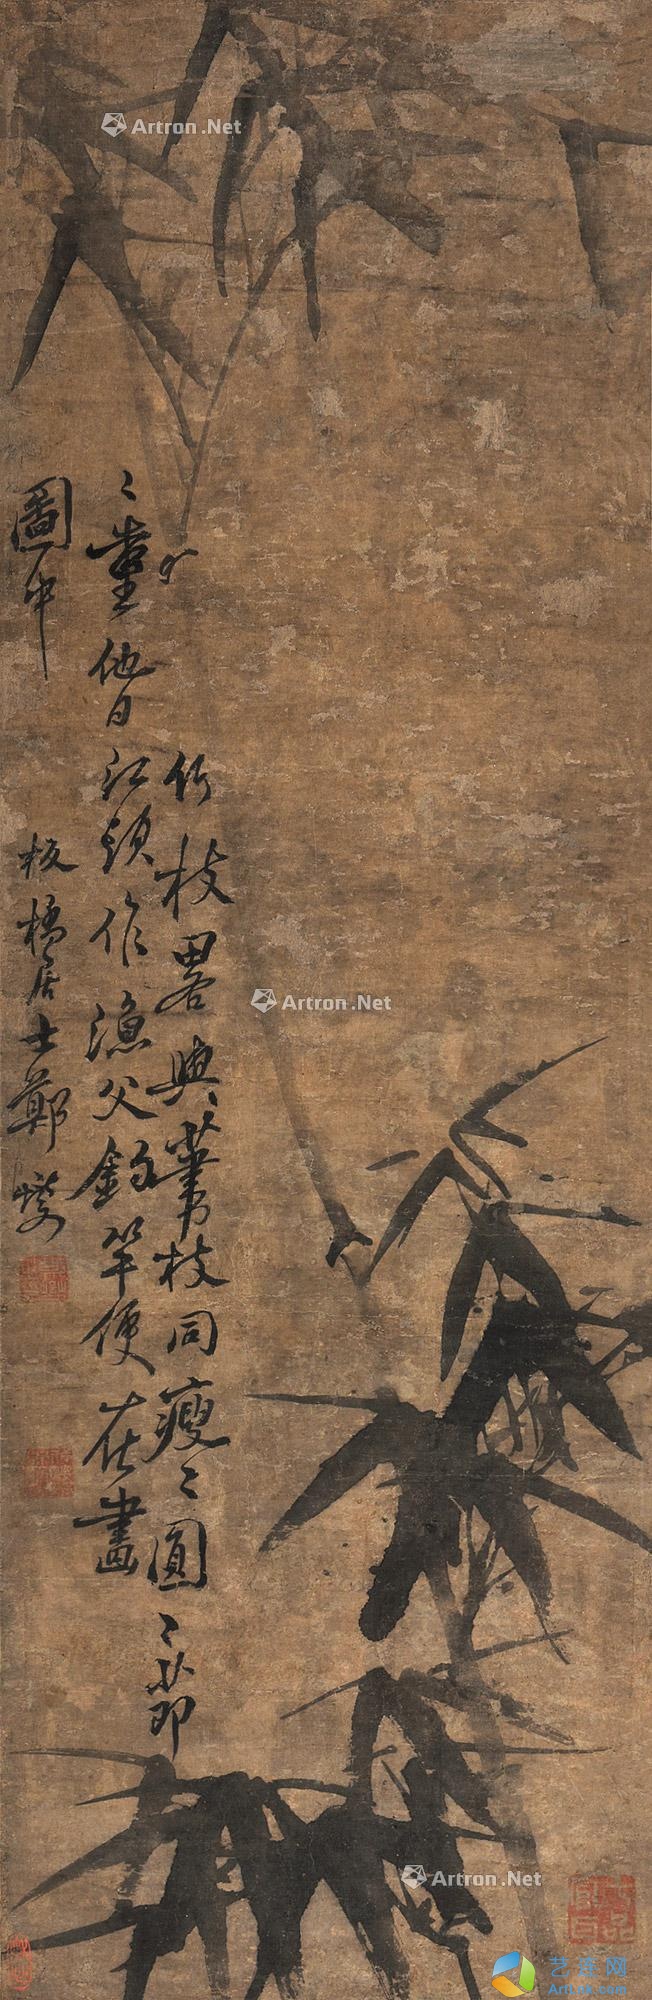 Artron.Net
Artron.Net
竹枝畧與葦枝同瘦〻圓〻節
〻重他日江頭作漁父釣竿便在畫
圖中
板橋居士鄭燮
Artron.Net
Artron.Net